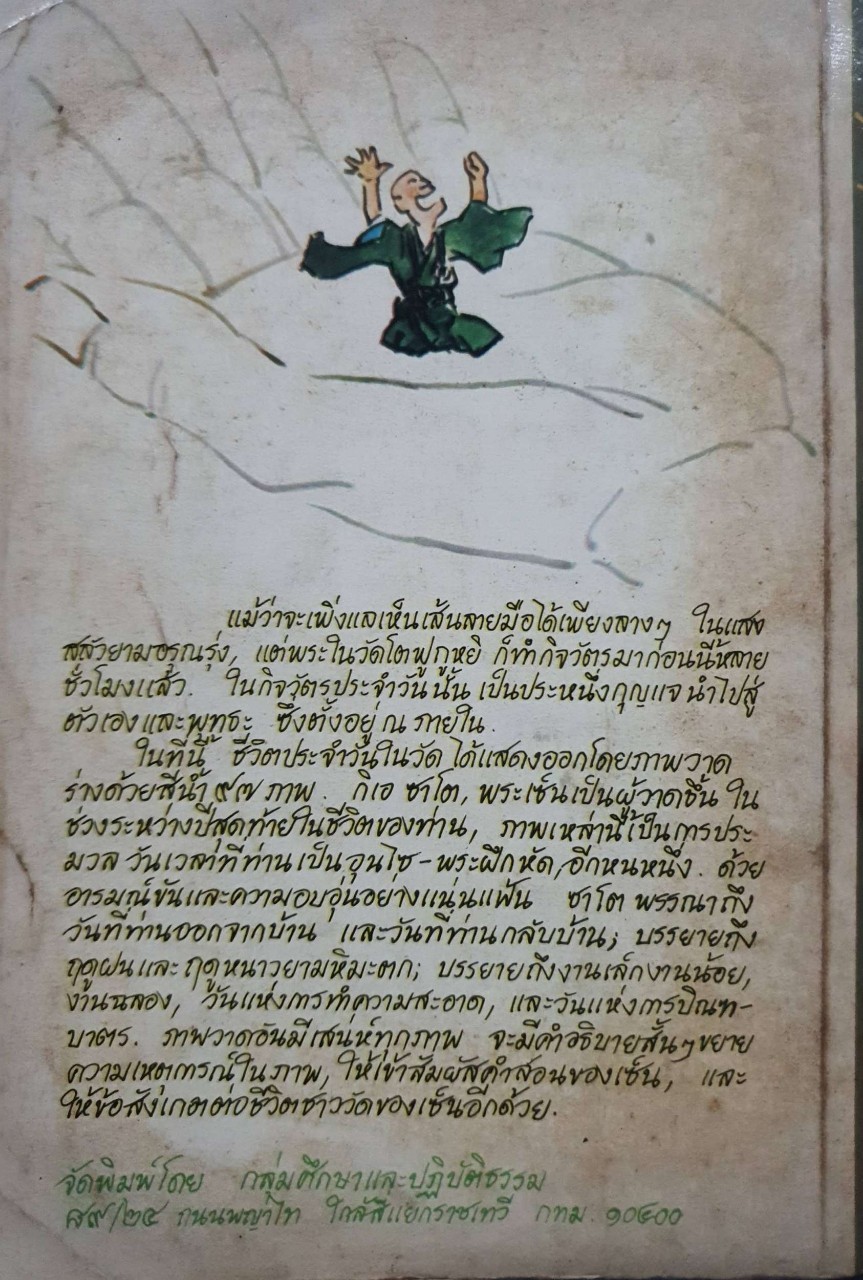 แม้ว่าจะเพิ่งแลเห็นเส้นลายมือได้เพียงลางๆ ในแสง
สลัวยามอรุณรุ่ง, แต่พระในวัดโตฟูกูหยิ ก็ทำกิจวัตรมาก่อนนี้หลาย
ชั่วโมงแล้ว. ในกิจวัตรประจำวันนั้น เป็นประหนึ่งกุญแจ นำไปสู่
ตัวเองและพุทธะ ซึ่งตั้งอยู่ ณ ภายใน.
ในที่นี้ ชีวิตประจำวันในวัด ได้แสดงออกโดยภาพวาด
ร่างด้วยสีน้ำ ๙๗ ภาพ. กิเอ ซาโต, พระเซ็นเป็นผู้วาดขึ้น ใน
ช่วงระหว่างปีสุดท้ายในชีวิตของท่าน, ภาพเหล่านี้เป็นการประ
มวล วันเวลาที่ท่านเป็น อุนไซ-พระฝึกหัด, อีกหนหนึ่ง. ด้วย
อารมณ์ขันและความอบอุ่นอย่างแน่นแฟ้น ซาโต พรรณาถึง
วันที่ท่านออกจากบ้าน และวันที่ท่านกลับบ้าน; บรรยายถึง
ฤดูฝนและฤดูหนาวยามหิมะตก; บรรยายถึงงานเล็กงานน้อย,
งานฉลอง, วันแห่งการทำความสะอาด, และวันแห่งการบิณฑ-
บาตร. ภาพวาดอันมีเสน่ห์ทุกภาพ จะมีคำอธิบายสั้นๆขยาย
ความเหตุการณ์ในภาพ, ให้เข้าสัมผัสคำสอนของเซ็น, และ
ให้ข้อสังเกตต่อชีวิตชาววัดของเซ็นอีกด้วย.
จัดพิมพ์โดย กลุ่มศึกษาและปฏิบัติธรรม
๘๙/๒๔ ถนนพญาไท ใกล้สี่แยกราชเทวี กทม. ๑๐๔๐๐